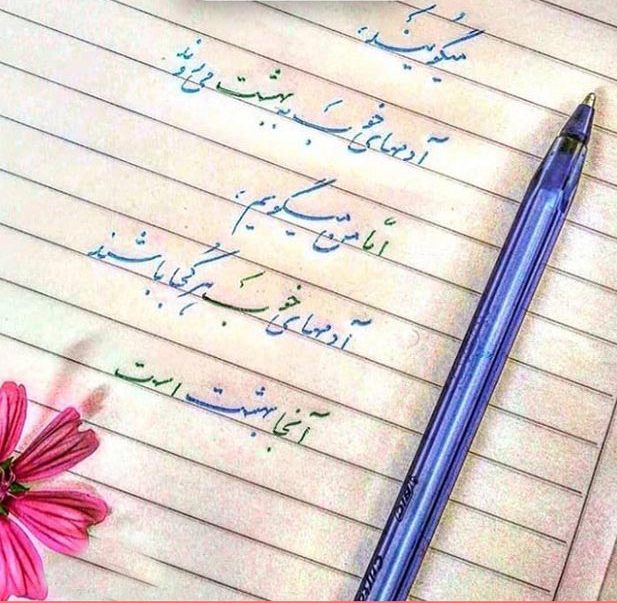 میگویند؛
آدمهای خوب به بهشت می‌روند
امّا من میگویم؛
آدمهای خوب هر کجا باشند
آنجا بهشت است